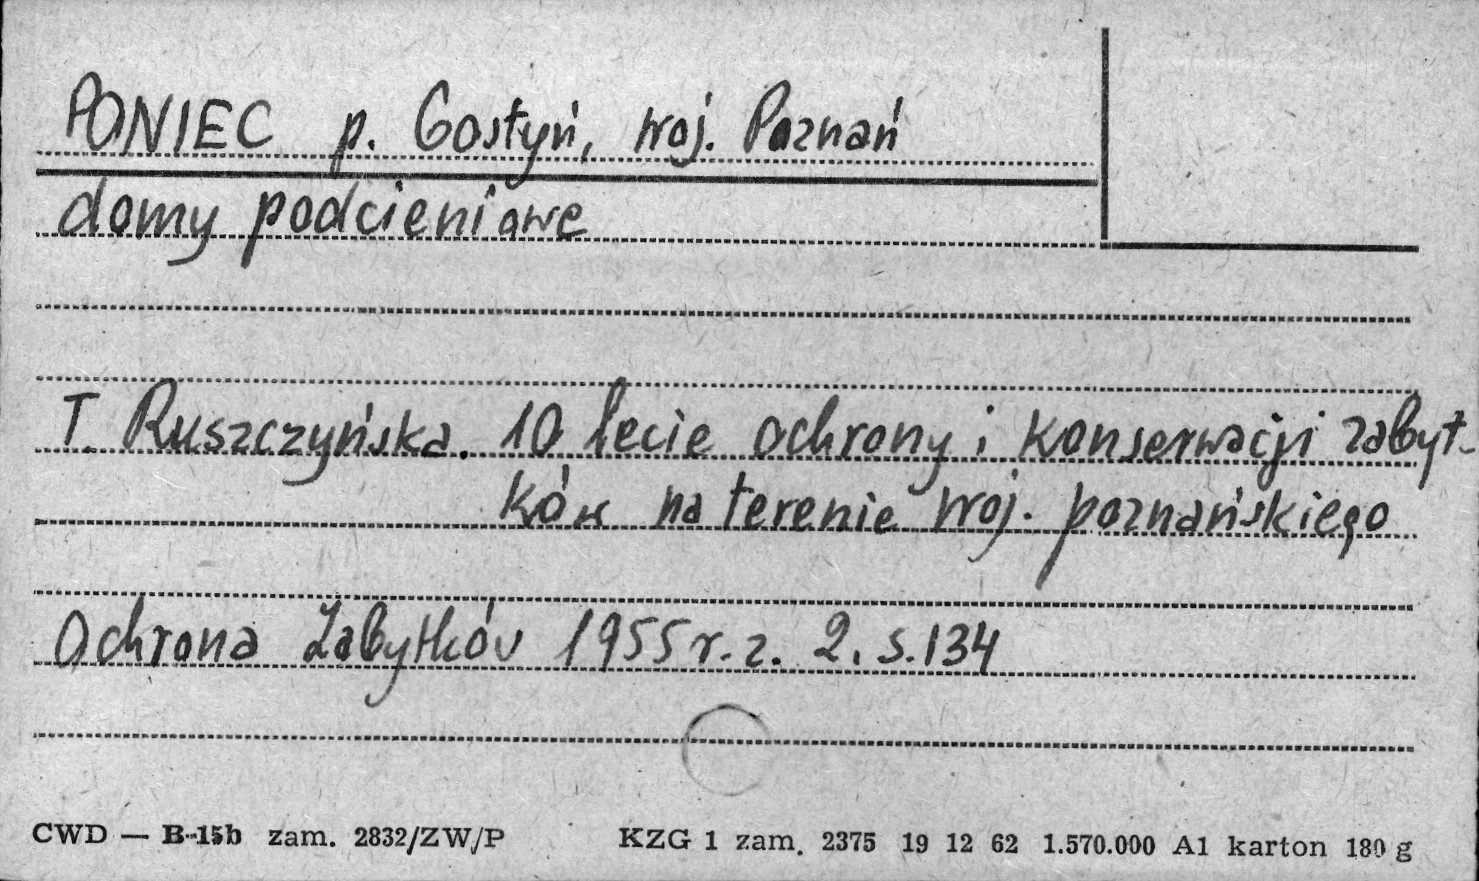 PONIEC p. Gostyń, woj. Poznań
domy podcieniowe
T. Ruszczyńska. 10 lecie ochrony i konserwacji zabyt-
ków na terenie woj. poznańskiego
Ochrona Zabytków 1955 r. z. 2. s. 134
CWD — B-15b zam. 2832/ZW/P KZG 1 zam. 2375 19 12 62 1.570.000 A1 karton 180 g